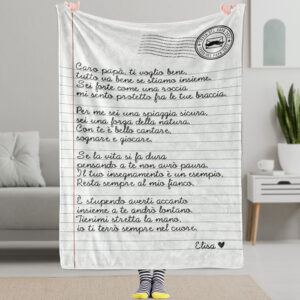 Caro papà, ti voglio bene,
tutto va bene se stiamo insieme.
Sei forte come una roccia
mi sento protetto fra le tue braccia.
Per me sei una spiaggia sicura,
sei una forza della natura.
Con te è bello cantare,
sognare e giocare.
Se la vita si fa dura
pensando a te non avrò paura.
Il tuo insegnamento è un esempio,
Resta sempre al mio fianco.
È stupendo averti accanto
insieme a te andrò lontano.
Tienimi stretta la mano,
io ti terrò sempre nel cuore.
Elisa